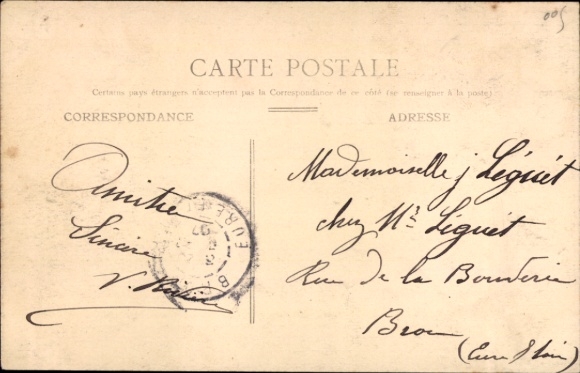 005
CARTE POSTALE
Certains pays étrangers n'acceptent pas la Correspondance de ce côté (se renseigner à la poste)
CORRESPONDANCE
ADRESSE
Amitié
Sincère
V.
EURE
Mademoiselle J Léguét
chez Mr Léguét
Rue de la Bouverie
Brou
(Eure & Loir)